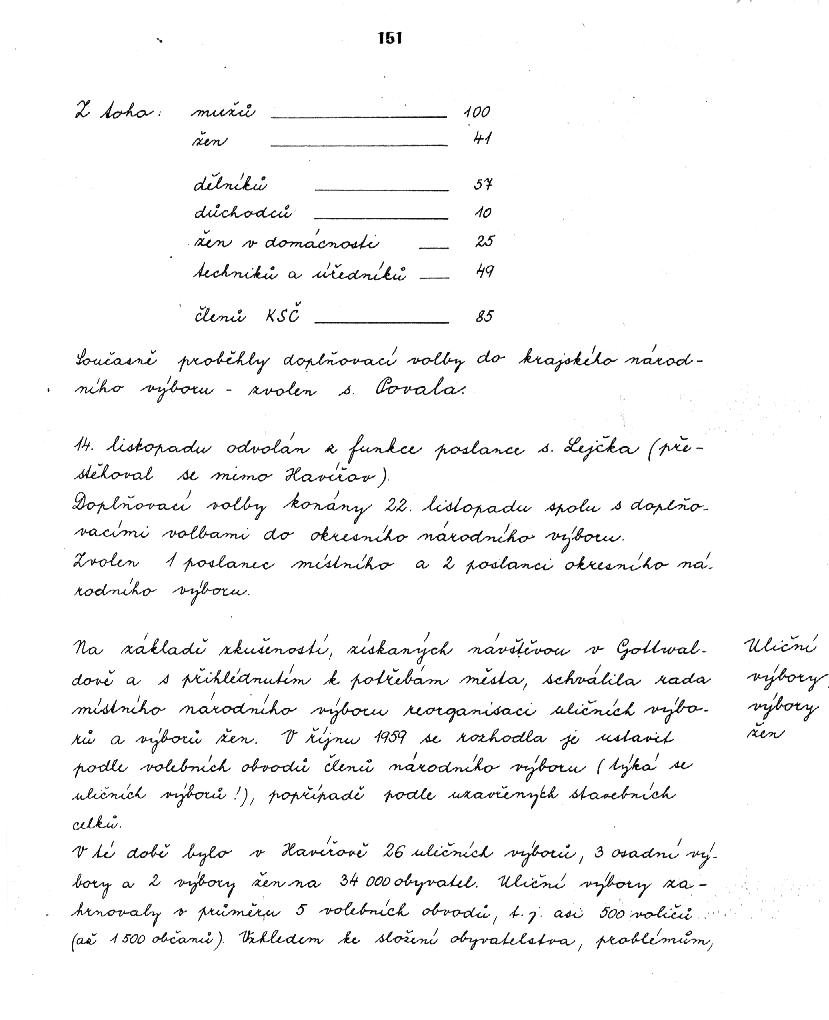 151
Z toho: mužů 100
žen 41
dělníků 57
důchodců 10
žen v domácnosti 25
techniků a úředníků 49
členů KSČ 85
Současně proběhly doplňovací volby do krajského národ-
ního výboru - zvolen s. Povala.
14. listopadu odvolán z funkce poslance s. Lejčka (pře-
stěhoval se mimo Havířov).
Doplňovací volby konány 22. listopadu spolu s doplňo-
vacími volbami do okresního národního výboru.
Zvolen 1 poslanec místního a 2 poslanci okresního ná-
rodního výboru.
Na základě zkušeností, získaných návštěvou v Gottwal-
dově a s přihlédnutím k potřebám města, schválila rada
místního národního výboru reorganisaci uličních výbo-
rů a výborů žen. V říjnu 1959 se rozhodla je ustavit
podle volebních obvodů členů národního výboru (týká se
uličních výborů!), popřípadě podle uzavřených stavebních
celků.
V té době bylo v Havířově 26 uličních výborů, 3 osadní vý-
bory a 2 výbory žen na 34 000 obyvatel. Uliční výbory za-
hrnovaly v průměru 5 volebních obvodů, t. j. asi 500 voličů
(až 1500 občanů). Vzhledem ke složení obyvatelstva, problémům,
Uliční
výbory,
výbory
žen